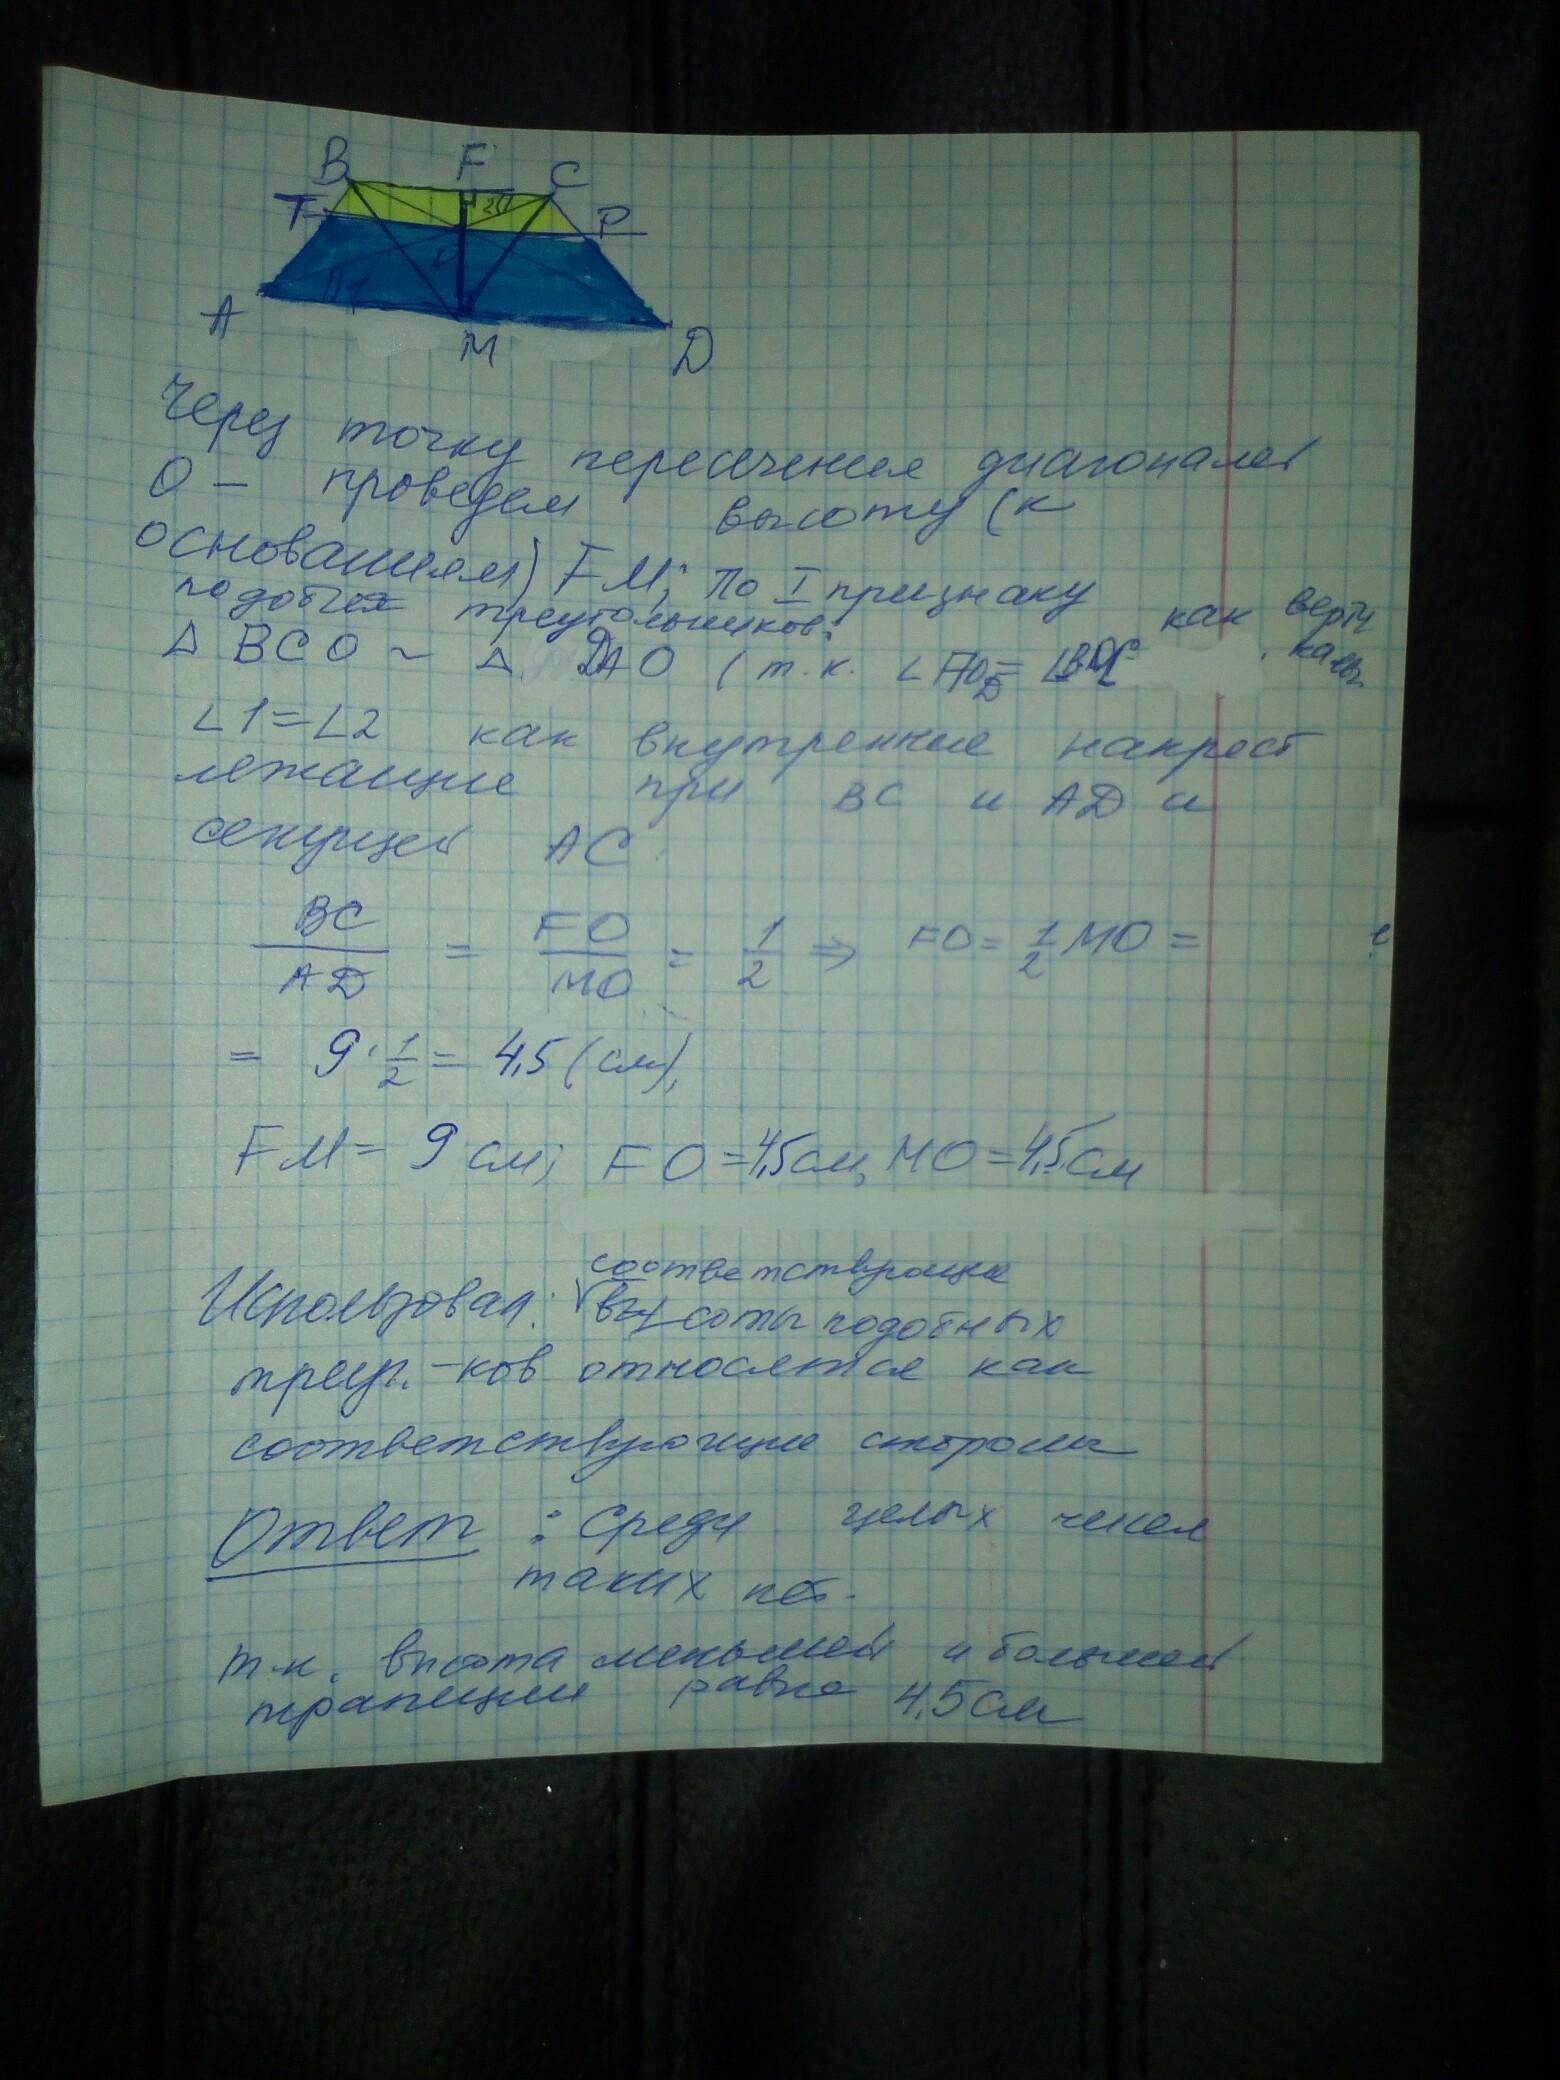 B F C
T 2 P
O
1
A M D
Через точку пересечения диагоналей
O – проведем высоту (к
основаниям) FM; По I признаку
подобия треугольников:
△ BCO ~ △ DAO (т.к. ∠AOD = ∠BOC как верти
кальн.
∠1=∠2 как внутренние накрест
лежащие при BC и AD и
секущей AC.
BC/AD = FO/MO = 1/2 ⇒ FO = 1/2 MO =
= 9·1/2 = 4,5 (см),
FM = 9 см; FO = 4,5 см, MO = 4,5 см
соответствующие
Использовал: √высоты подобных
треуг.-ков относятся как
соответствующие стороны
Ответ : Среди целых чисел
таких нет.
т.к. высота меньшей и большей
трапеции равна 4,5 см